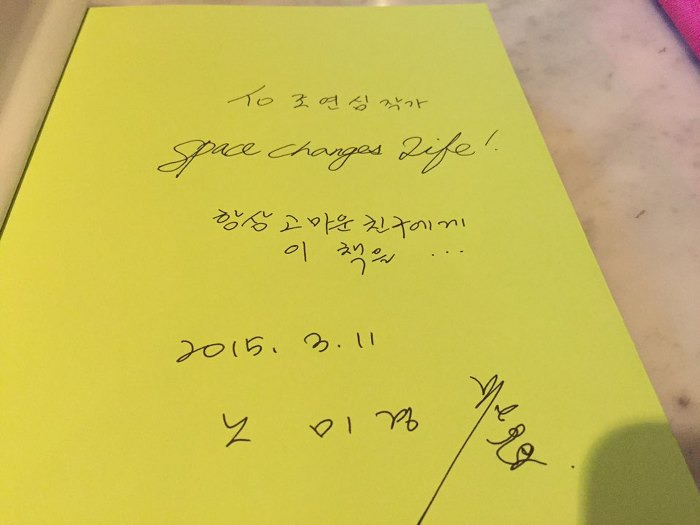 to 조연심 작가
Space Changes Life!
항상 고마운 친구에게
이 책을 ...
2015. 3. 11
노 미경